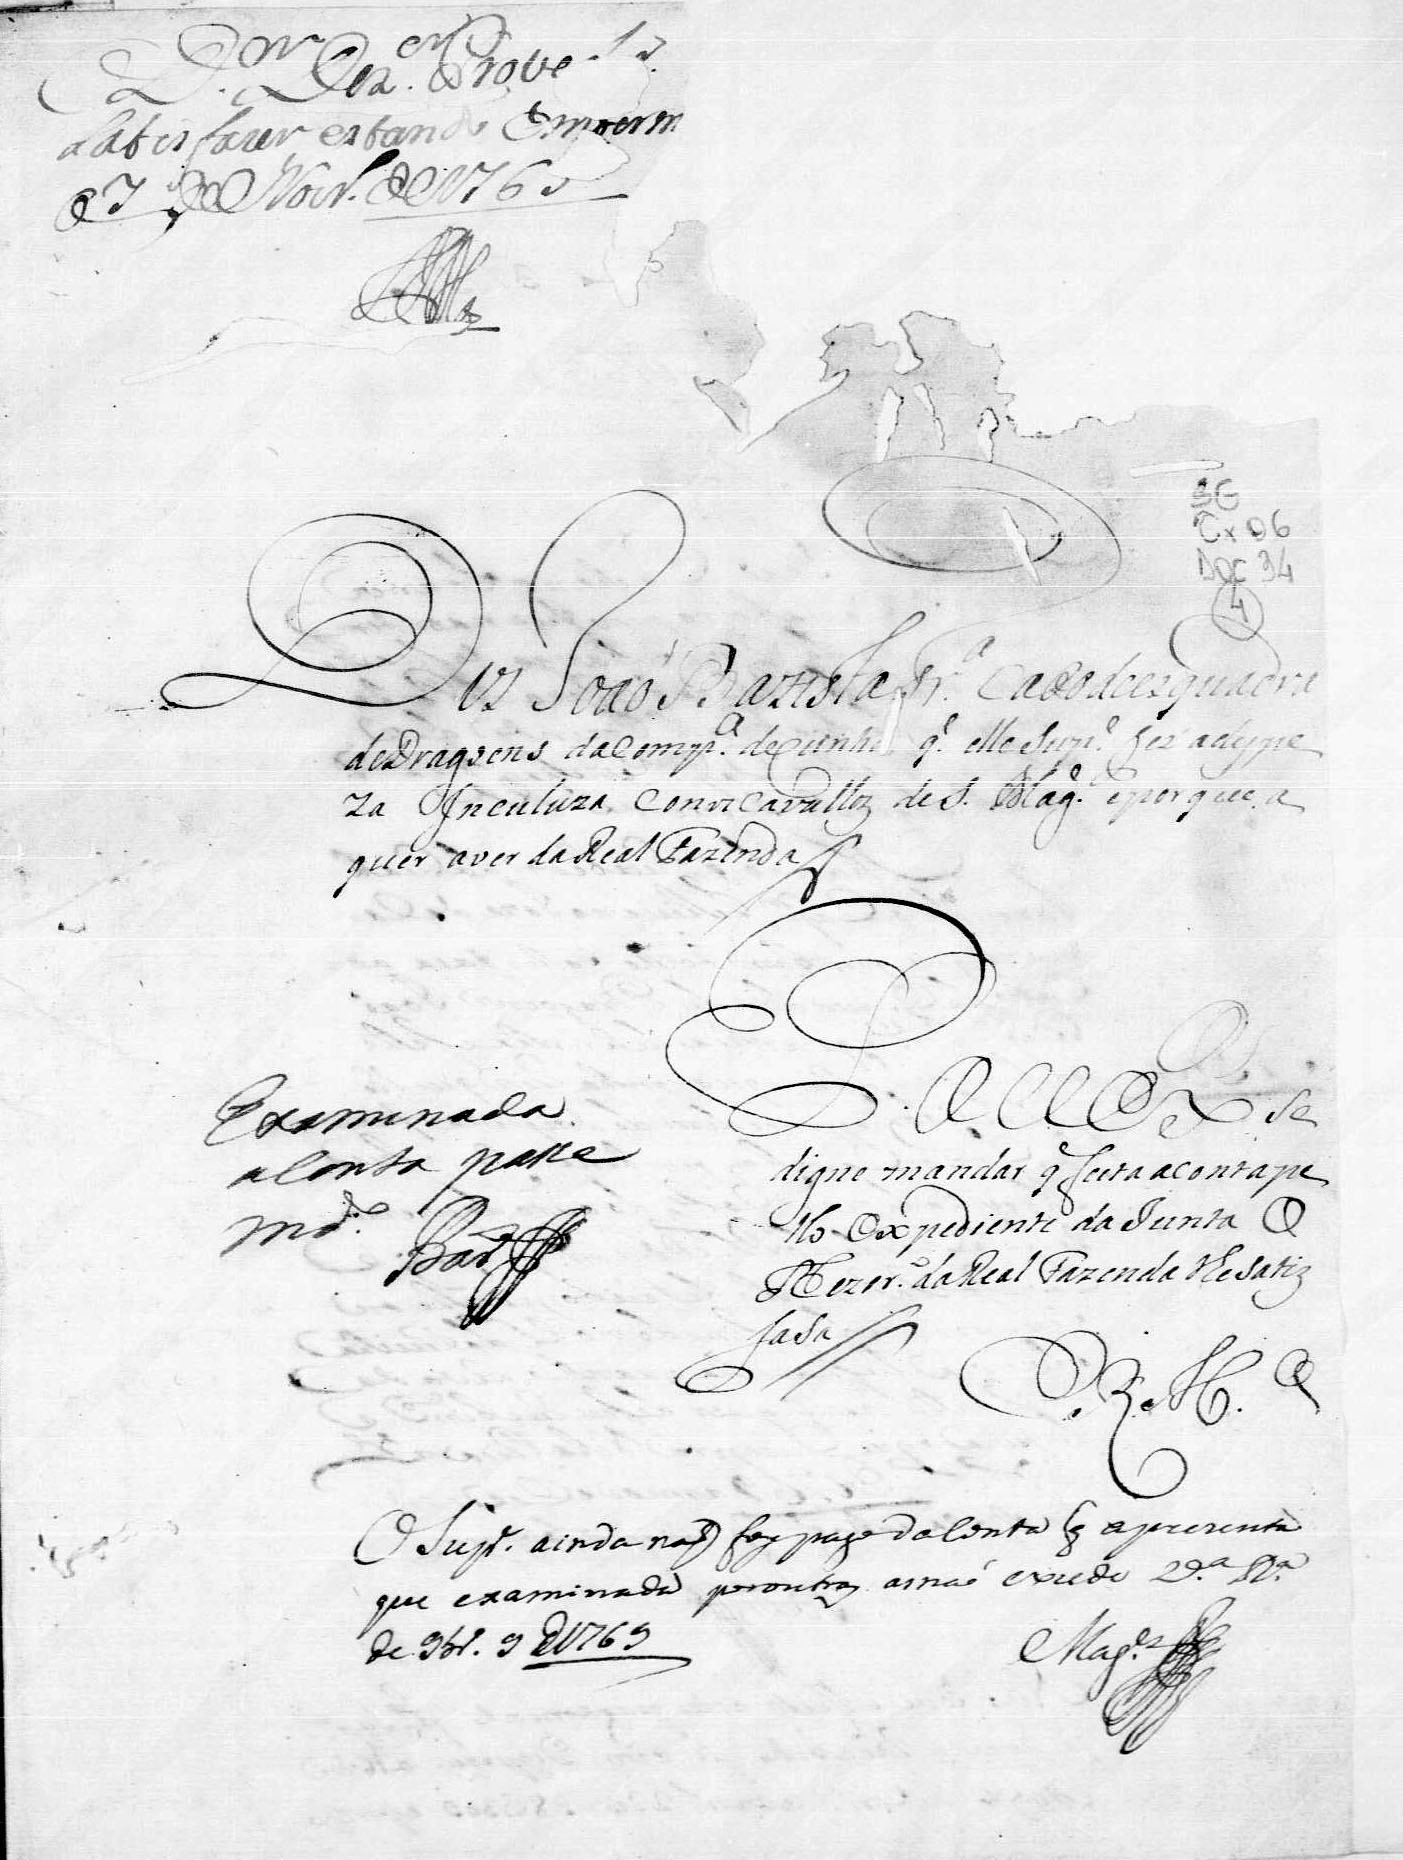 D. Dez. Prove
satisfazer estando Em term
a 7 de Nov. de 1765
SG
Cx 06
DOC 34
4
Diz Joaõ Bazista Frª Cabo de esquadra
de Dragoens da Compª. de Cunha q.e elle Sup.e fes a despe
za Incluza Com os Cavallos de S. Mag.e e porque a
quer aver da Real Fazenda
P. a V Ex se
digne mandar q feita a conta pe
llo Expediente da Junta O
Thezor.o da Real Fazenda lhe satis
fasa
E. R. M.ce
Examinada
a Conta passe
m.do
O Sup.e ainda naõ foy pago da Conta q aprezenta
que examinada
de 9br.o 9 de 1769
Mag.es